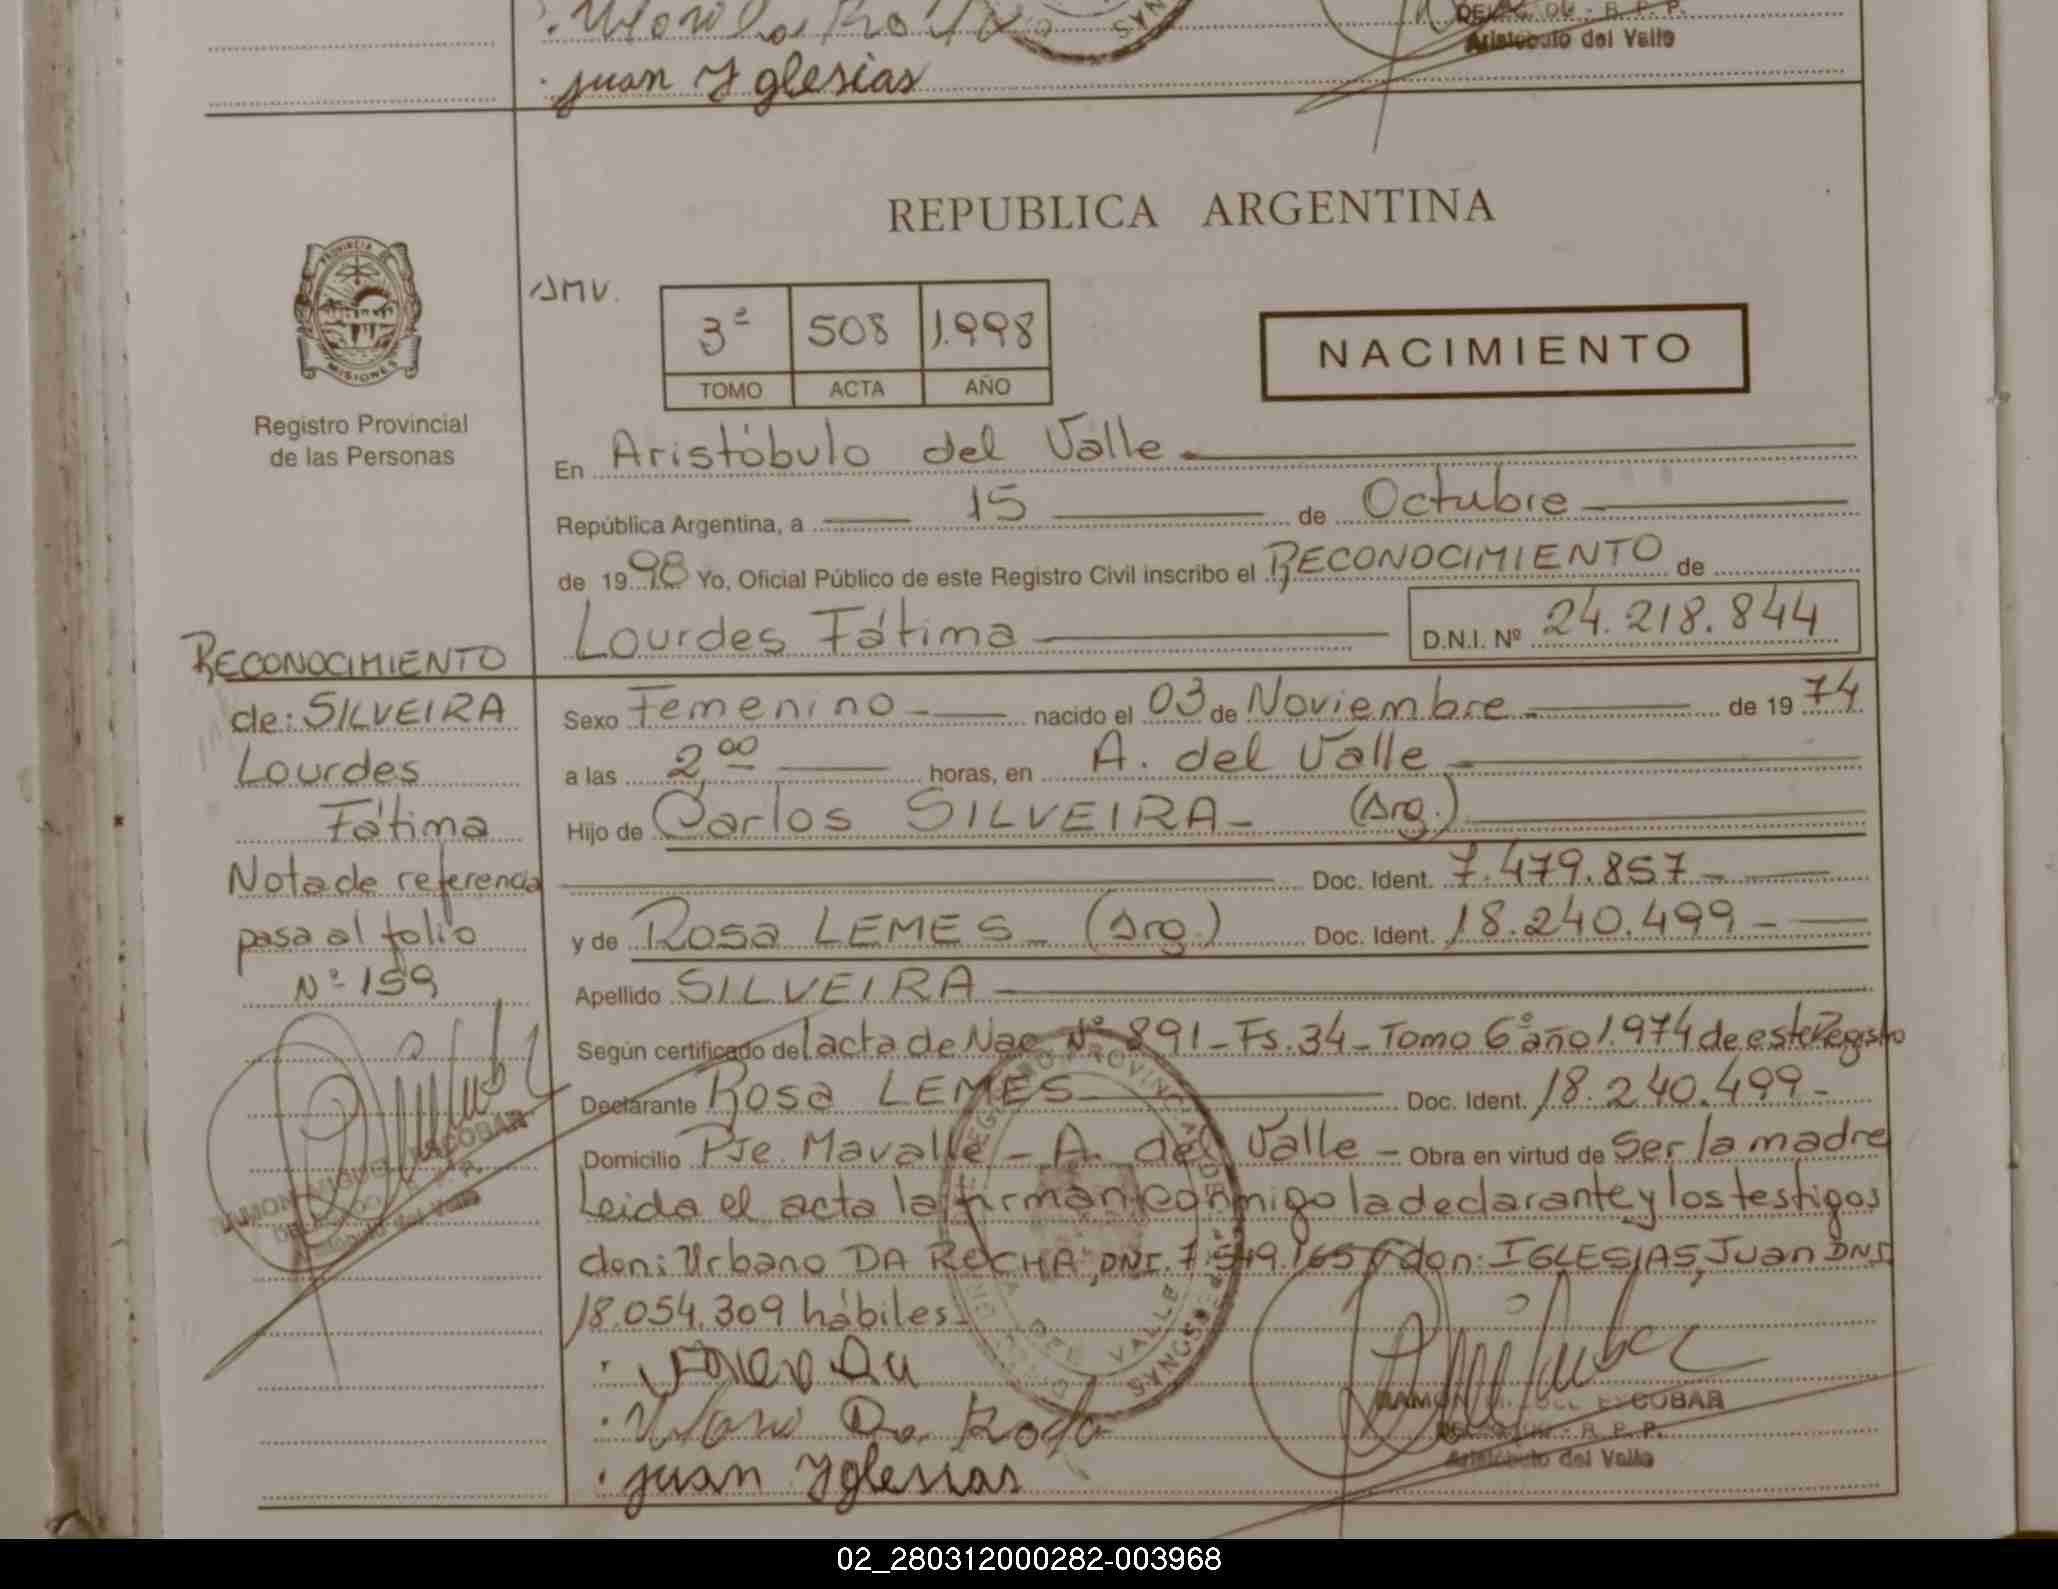 juan Yglesias
Aristóbulo del Valle
REPUBLICA ARGENTINA
PROVINCIA DE
MISIONES
Registro Provincial
de las Personas
AMV.
3º 508 1.998
TOMO ACTA AÑO
NACIMIENTO
En Aristóbulo del Valle
República Argentina, a 15 de Octubre
de 1998 Yo, Oficial Público de este Registro Civil inscribo el RECONOCIMIENTO de
Lourdes Fátima D.N.I. Nº 24.218.844
RECONOCIMIENTO
de: SILVEIRA
Lourdes
Fátima
Nota de referencia
pasa al folio
Nº 159
Sexo Femenino nacido el 03 de Noviembre de 1974
a las 2,00 horas, en A. del Valle
Hijo de Carlos SILVEIRA (Arg.)
Doc. Ident. 7.479.857
y de Rosa LEMES (Arg.) Doc. Ident. 18.240.499
Apellido SILVEIRA
Según certificado del acta de Nac. Nº 891 - Fs. 34 - Tomo 6º año 1.974 de este Registro
Declarante Rosa LEMES Doc. Ident. 18.240.499
Domicilio Pje. Mavalle - A. del Valle - Obra en virtud de Ser la madre
Leida el acta la firman conmigo la declarante y los testigos
don: Urbano DA ROCHA, DNI. 7.549.165 y don: IGLESIAS, Juan DNI
18.054.309 hábiles
juan Yglesias
RAMON MIGUEL ESCOBAR
DELEGADO - R. P. P.
Aristóbulo del Valle
02_280312000282-003968